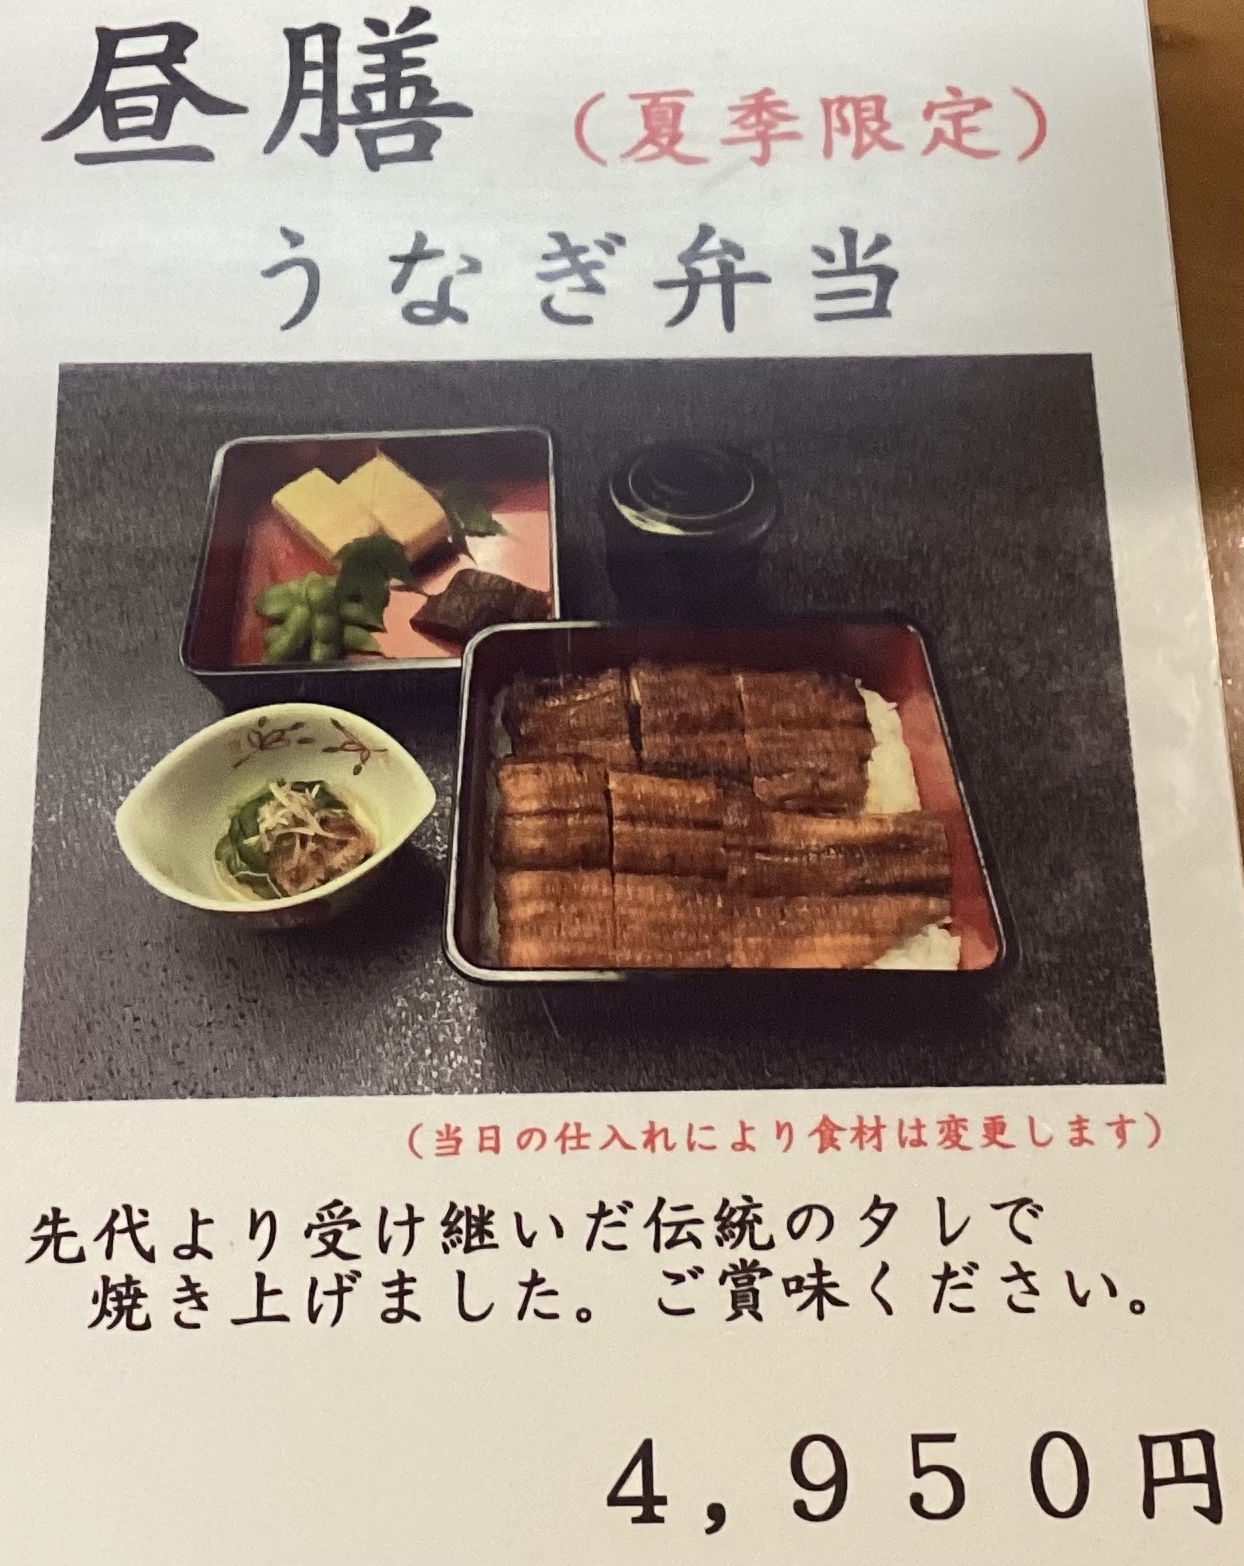 昼膳 （夏季限定）
うなぎ弁当
（当日の仕入れにより食材は変更します）
先代より受け継いだ伝統のタレで
焼き上げました。ご賞味ください。
4,950円